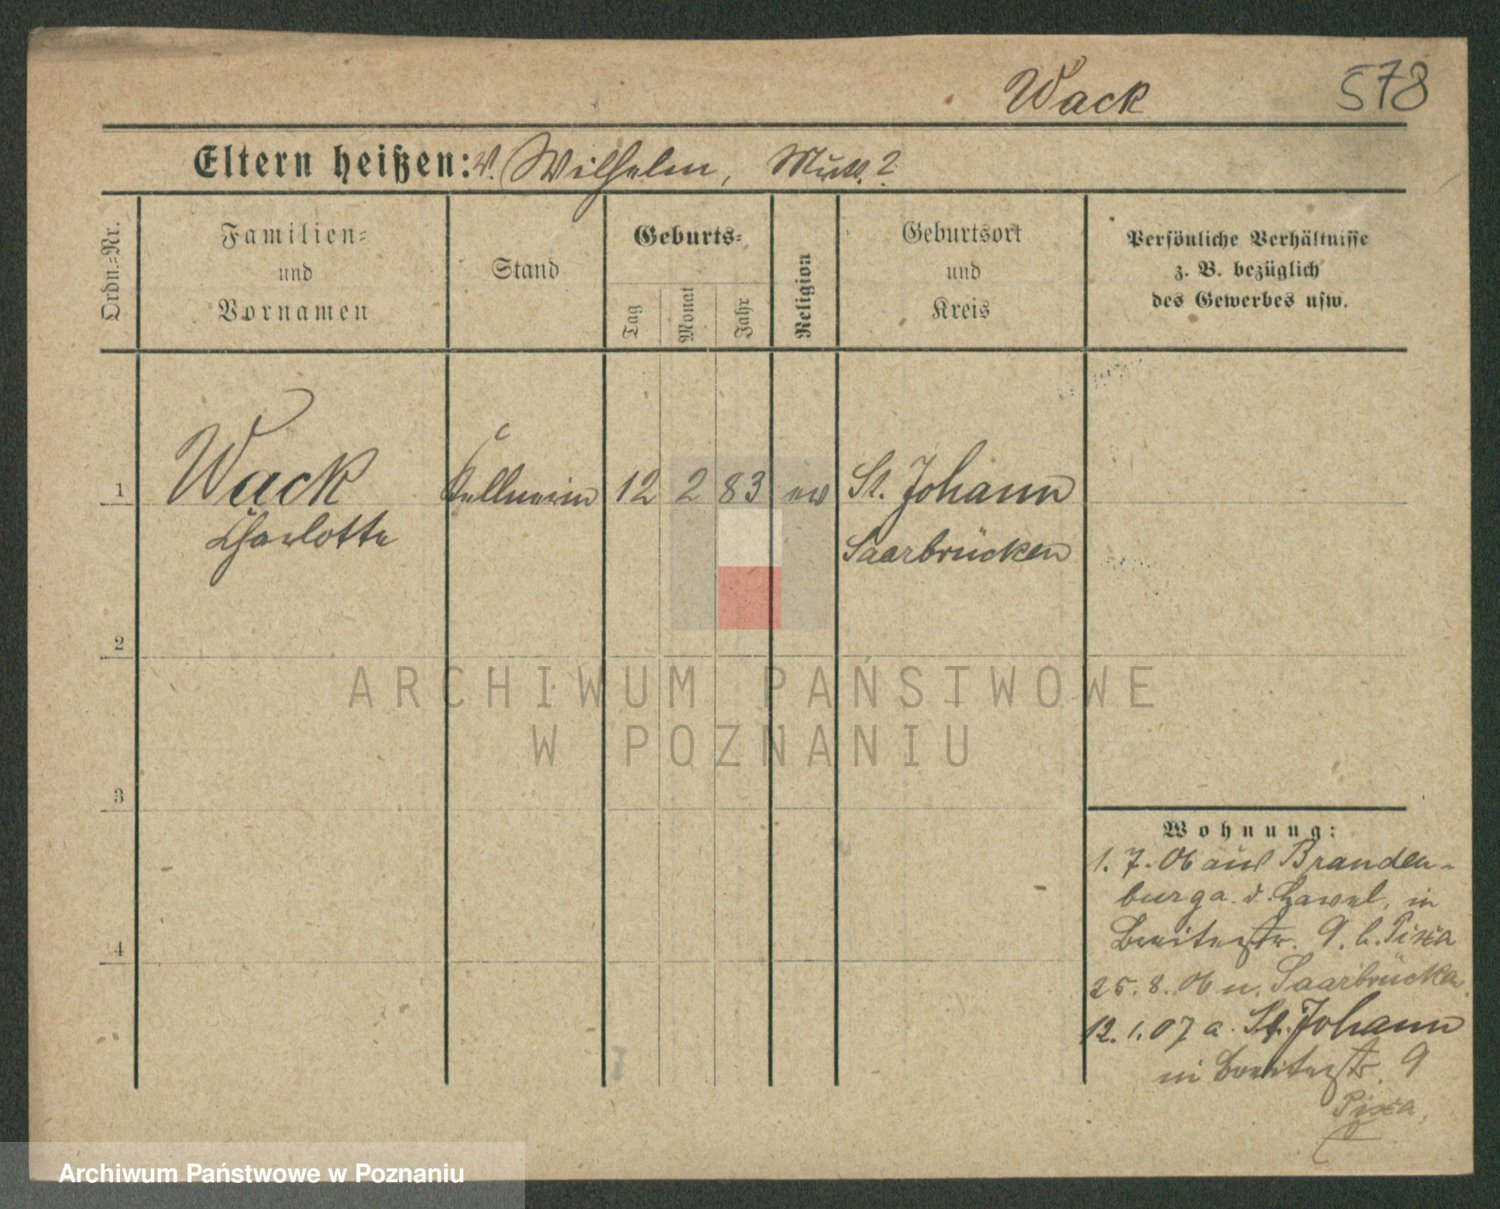 Wack 578
Eltern heißen: V. Wilhelm, Mutt. ?
Ordn.-Nr.
Familien-
und
Vornamen
Stand
Geburts-
Tag
Monat
Jahr
Religion
Geburtsort
und
Kreis
Persönliche Verhältnisse
z. B. bezüglich
des Gewerbes usw.
1 Wack Kellnerin 12 2 83 ev St. Johann
Charlotte Saarbrücken
2
3
4
Wohnung:
1. 7. 06 aus Branden-
burg a. d. Havel, in
Breitestr. 9. b.
25. 8. 06 n. Saarbrücken
12. 1. 07 a. St. Johann
in Breitestr. 9
ARCHIWUM PAŃSTWOWE
W POZNANIU
Archiwum Państwowe w Poznaniu